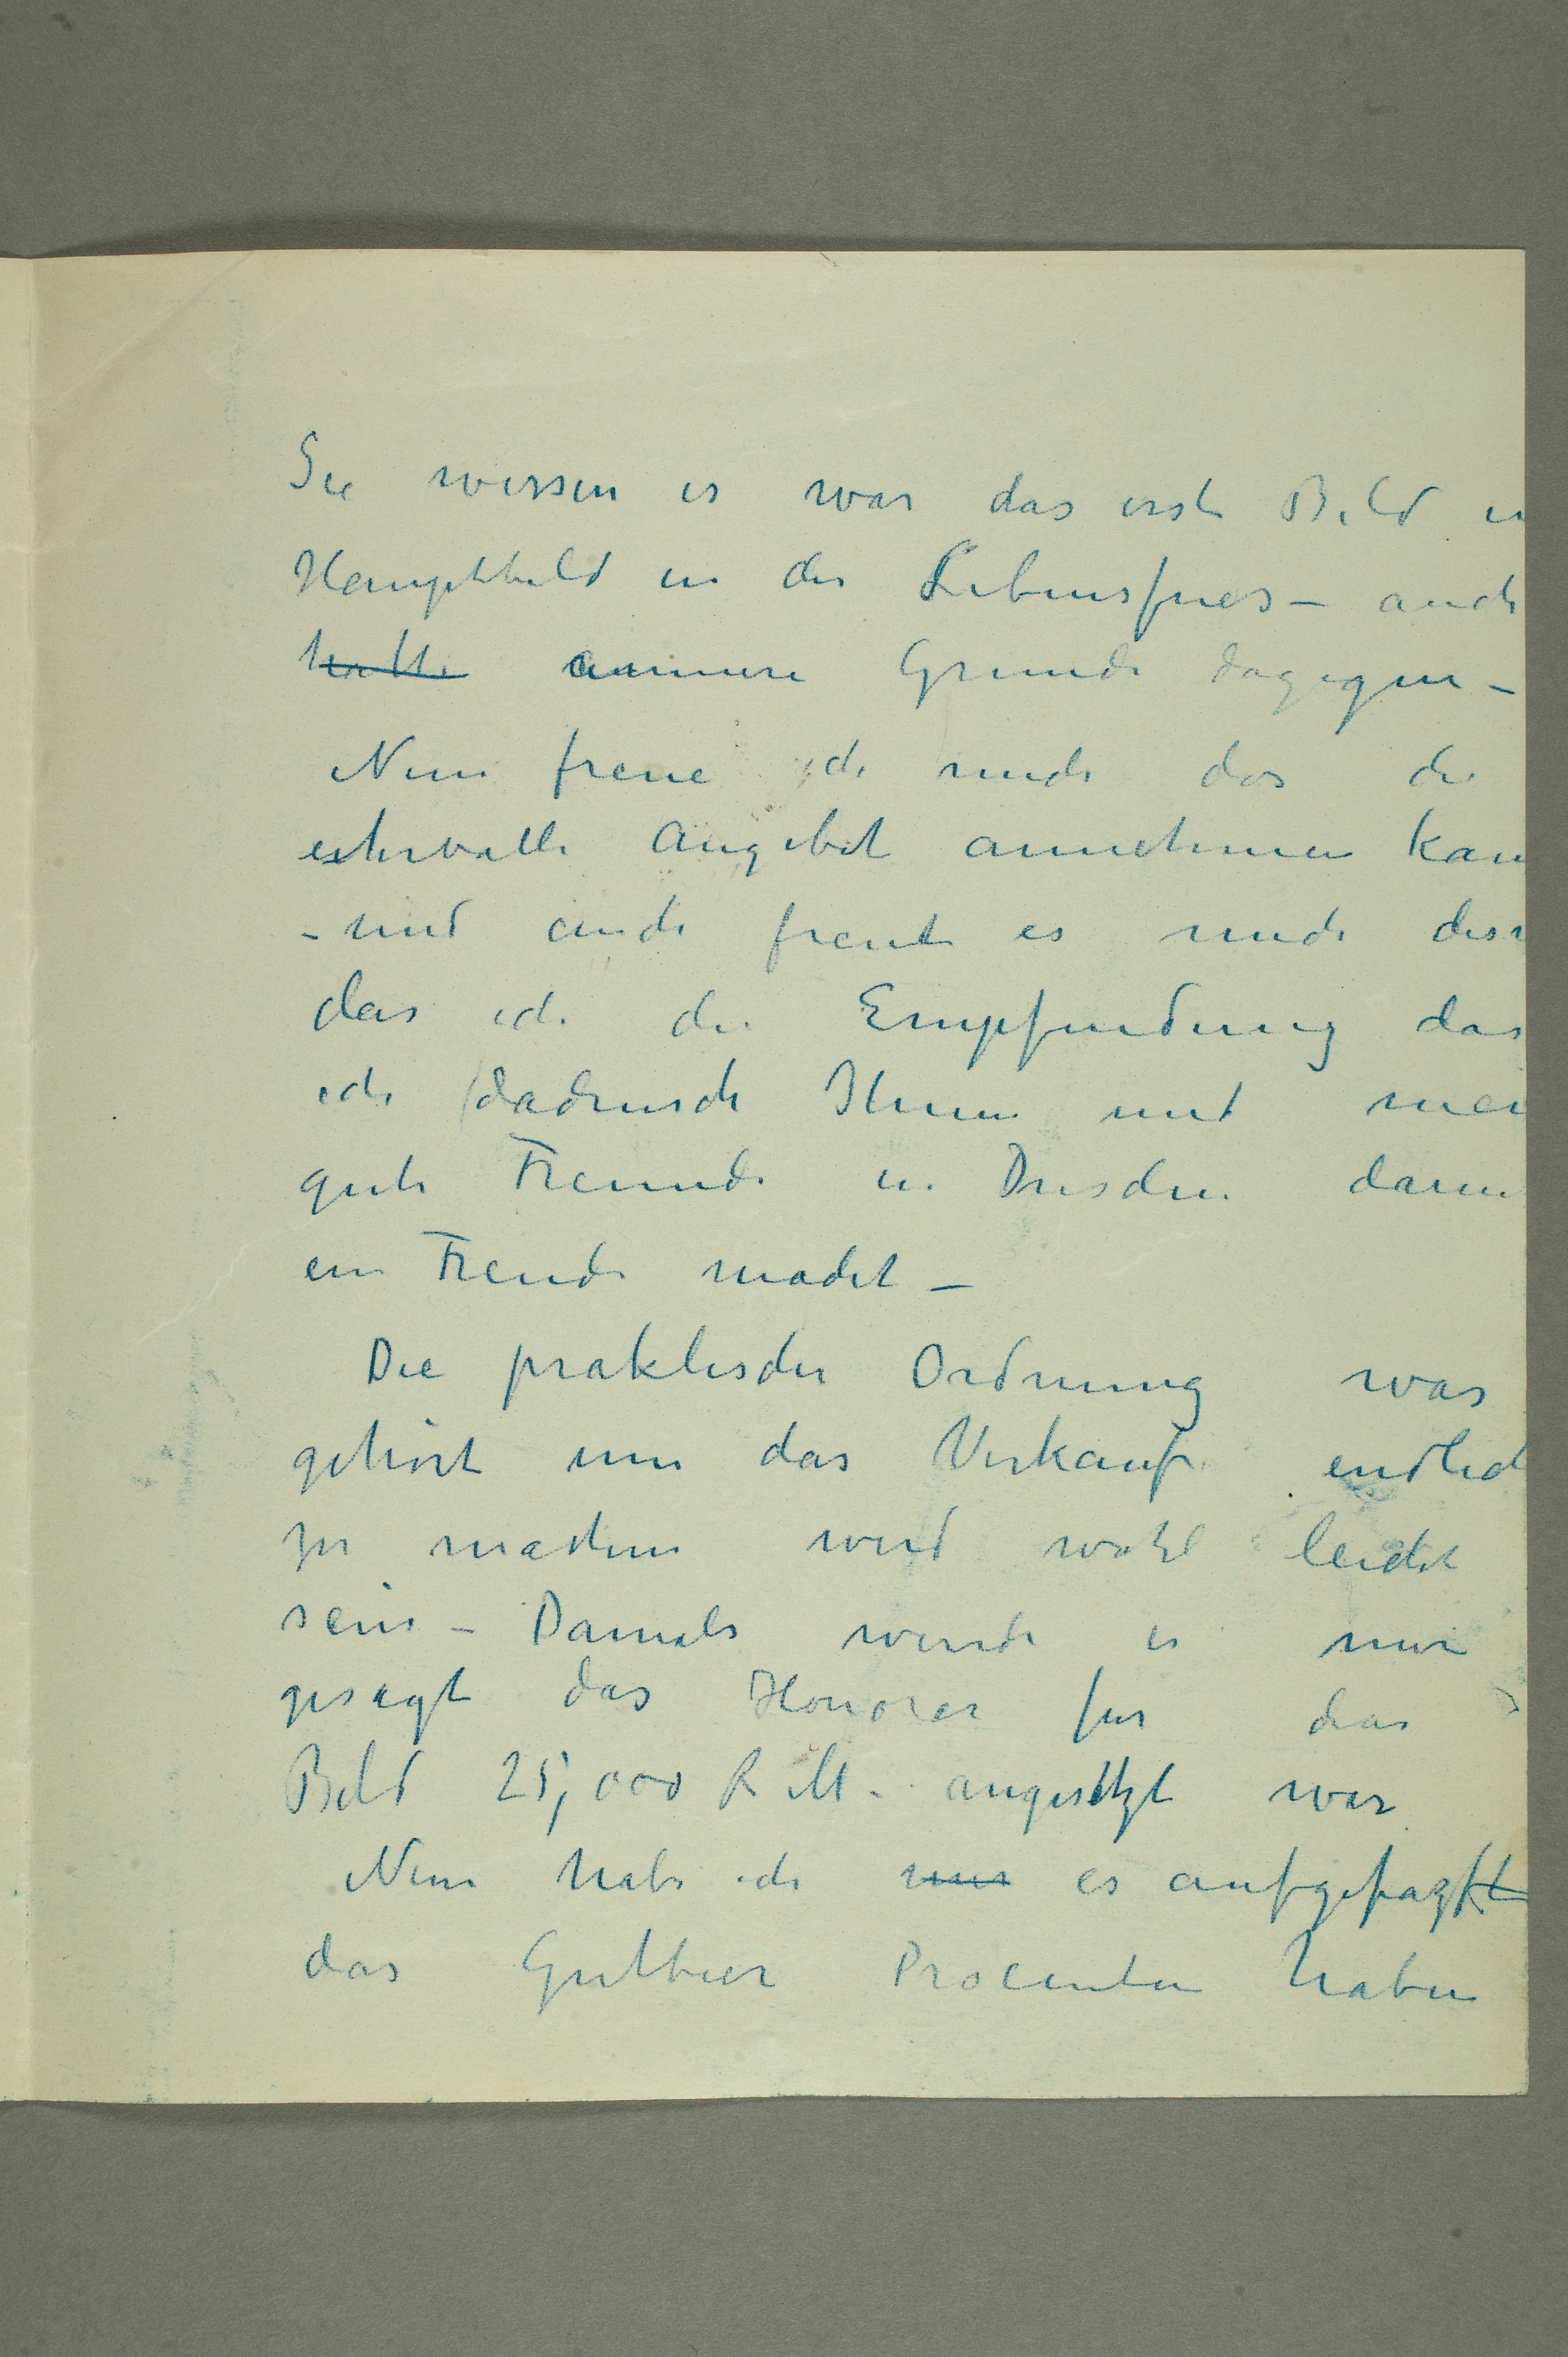 Sie wissen es war das erste Bild u
Hauptbild in der Lebensfries – auch
hatte annere Grunde dagegen –
Nun freue ich mich das die
ehrvolle Angebot annehmen kan
– und auch freute es mich des
das ich die Empfindung das
ich dadursch Ihnen und mei
gute Freunde in Dresden darm
ein Freude macht –
Die praktischer Ordnung was
gehört um das Verkauf endlich
zu machen wird wohl leicht
sein – Damals wurde es mir
gesagt das Honorar fur das
Bild 25,000 R M. angesetzt war
Nun habe ich nur es aufgefasst
das Gutbier Procenten haben